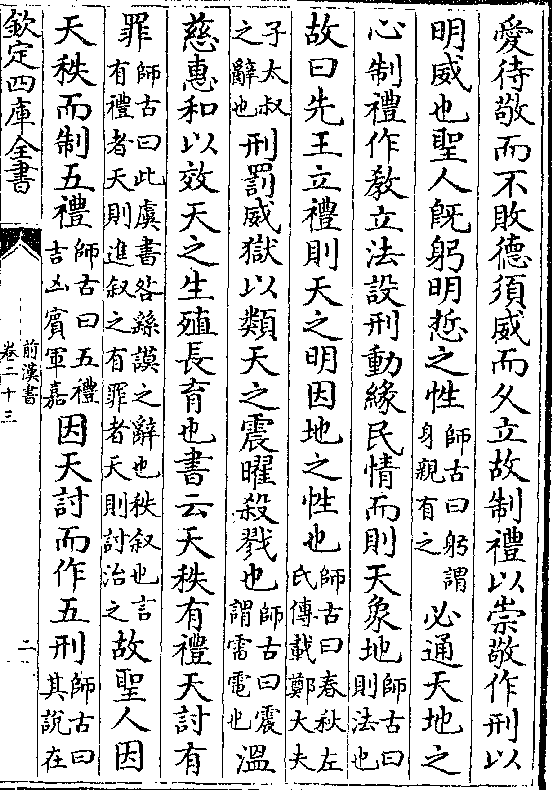 愛待敬而不敗德須威而久立故制禮以崇敬作刑以
明威也聖人既躬明悊之性師古曰躬謂身親有之必通天地之
心制禮作教立法設刑動緣民情而則天象地師古曰則法也
故曰先王立禮則天之明因地之性也師古曰春秋左氏傳載鄭大夫
子太叔之辭也刑罰威獄以類天之震曜殺戮也師古曰震謂雷電也溫
慈惠和以效天之生殖長育也書云天秩有禮天討有
罪師古曰此虞書咎繇謨之辭也秩叙也言有禮者天則進叙之有罪者天則討治之故聖人因
天秩而制五禮師古曰五禮吉凶賓軍嘉因天討而作五刑師古曰其說在
欽定四庫全書
前漢書
卷二十三
二